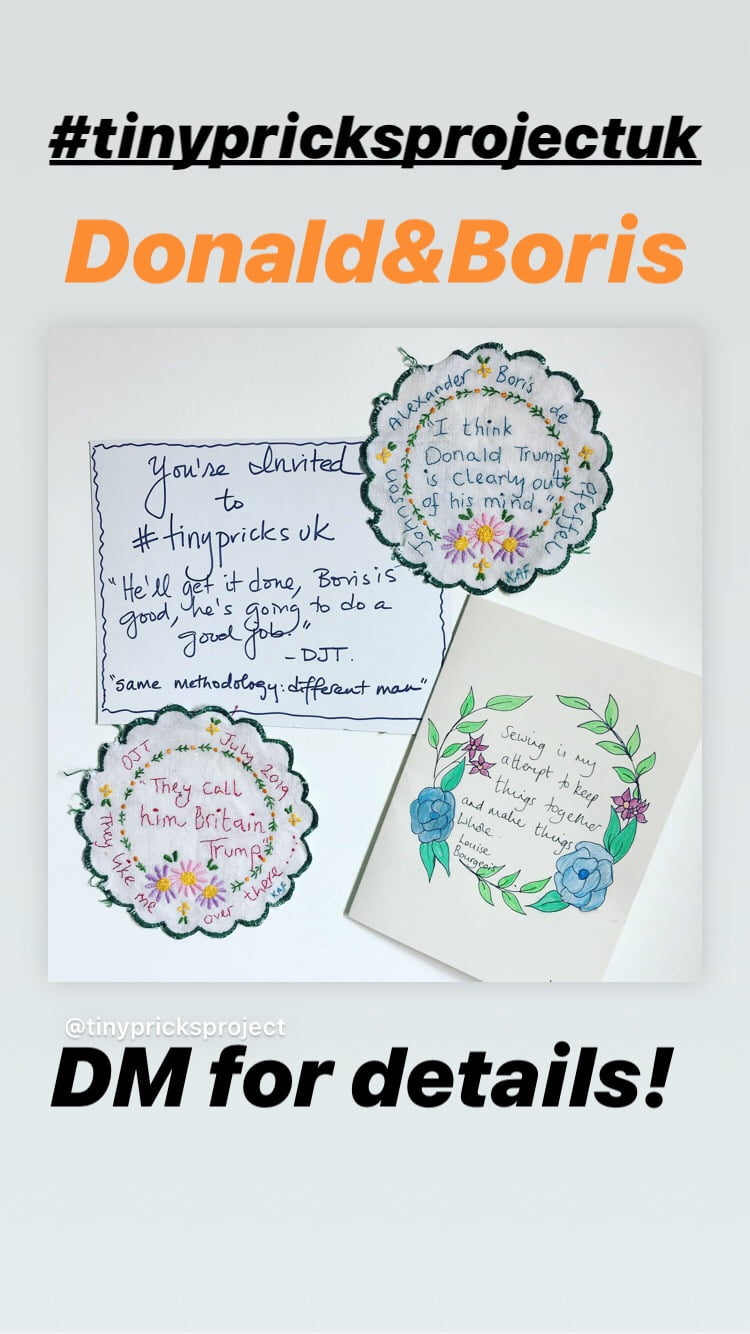 #tinypricksprojectuk
Donald&Boris
You're Invited
to
#tinypricks uk
"He'll get it done, Boris is
good, he's going to do a
good job."
- DJT.
"same methodology: different man"
Alexander Boris de Pfeffel Johnson
"I think
Donald Trump
is clearly out
of his mind."
KAF
DJT July 2019
"They call
him Britain
Trump."
They like me over there....
KAF
Sewing is my
attempt to keep
things together
and make things
Whole.
Louise
Bourgeois
@tinypricksproject
DM for details!